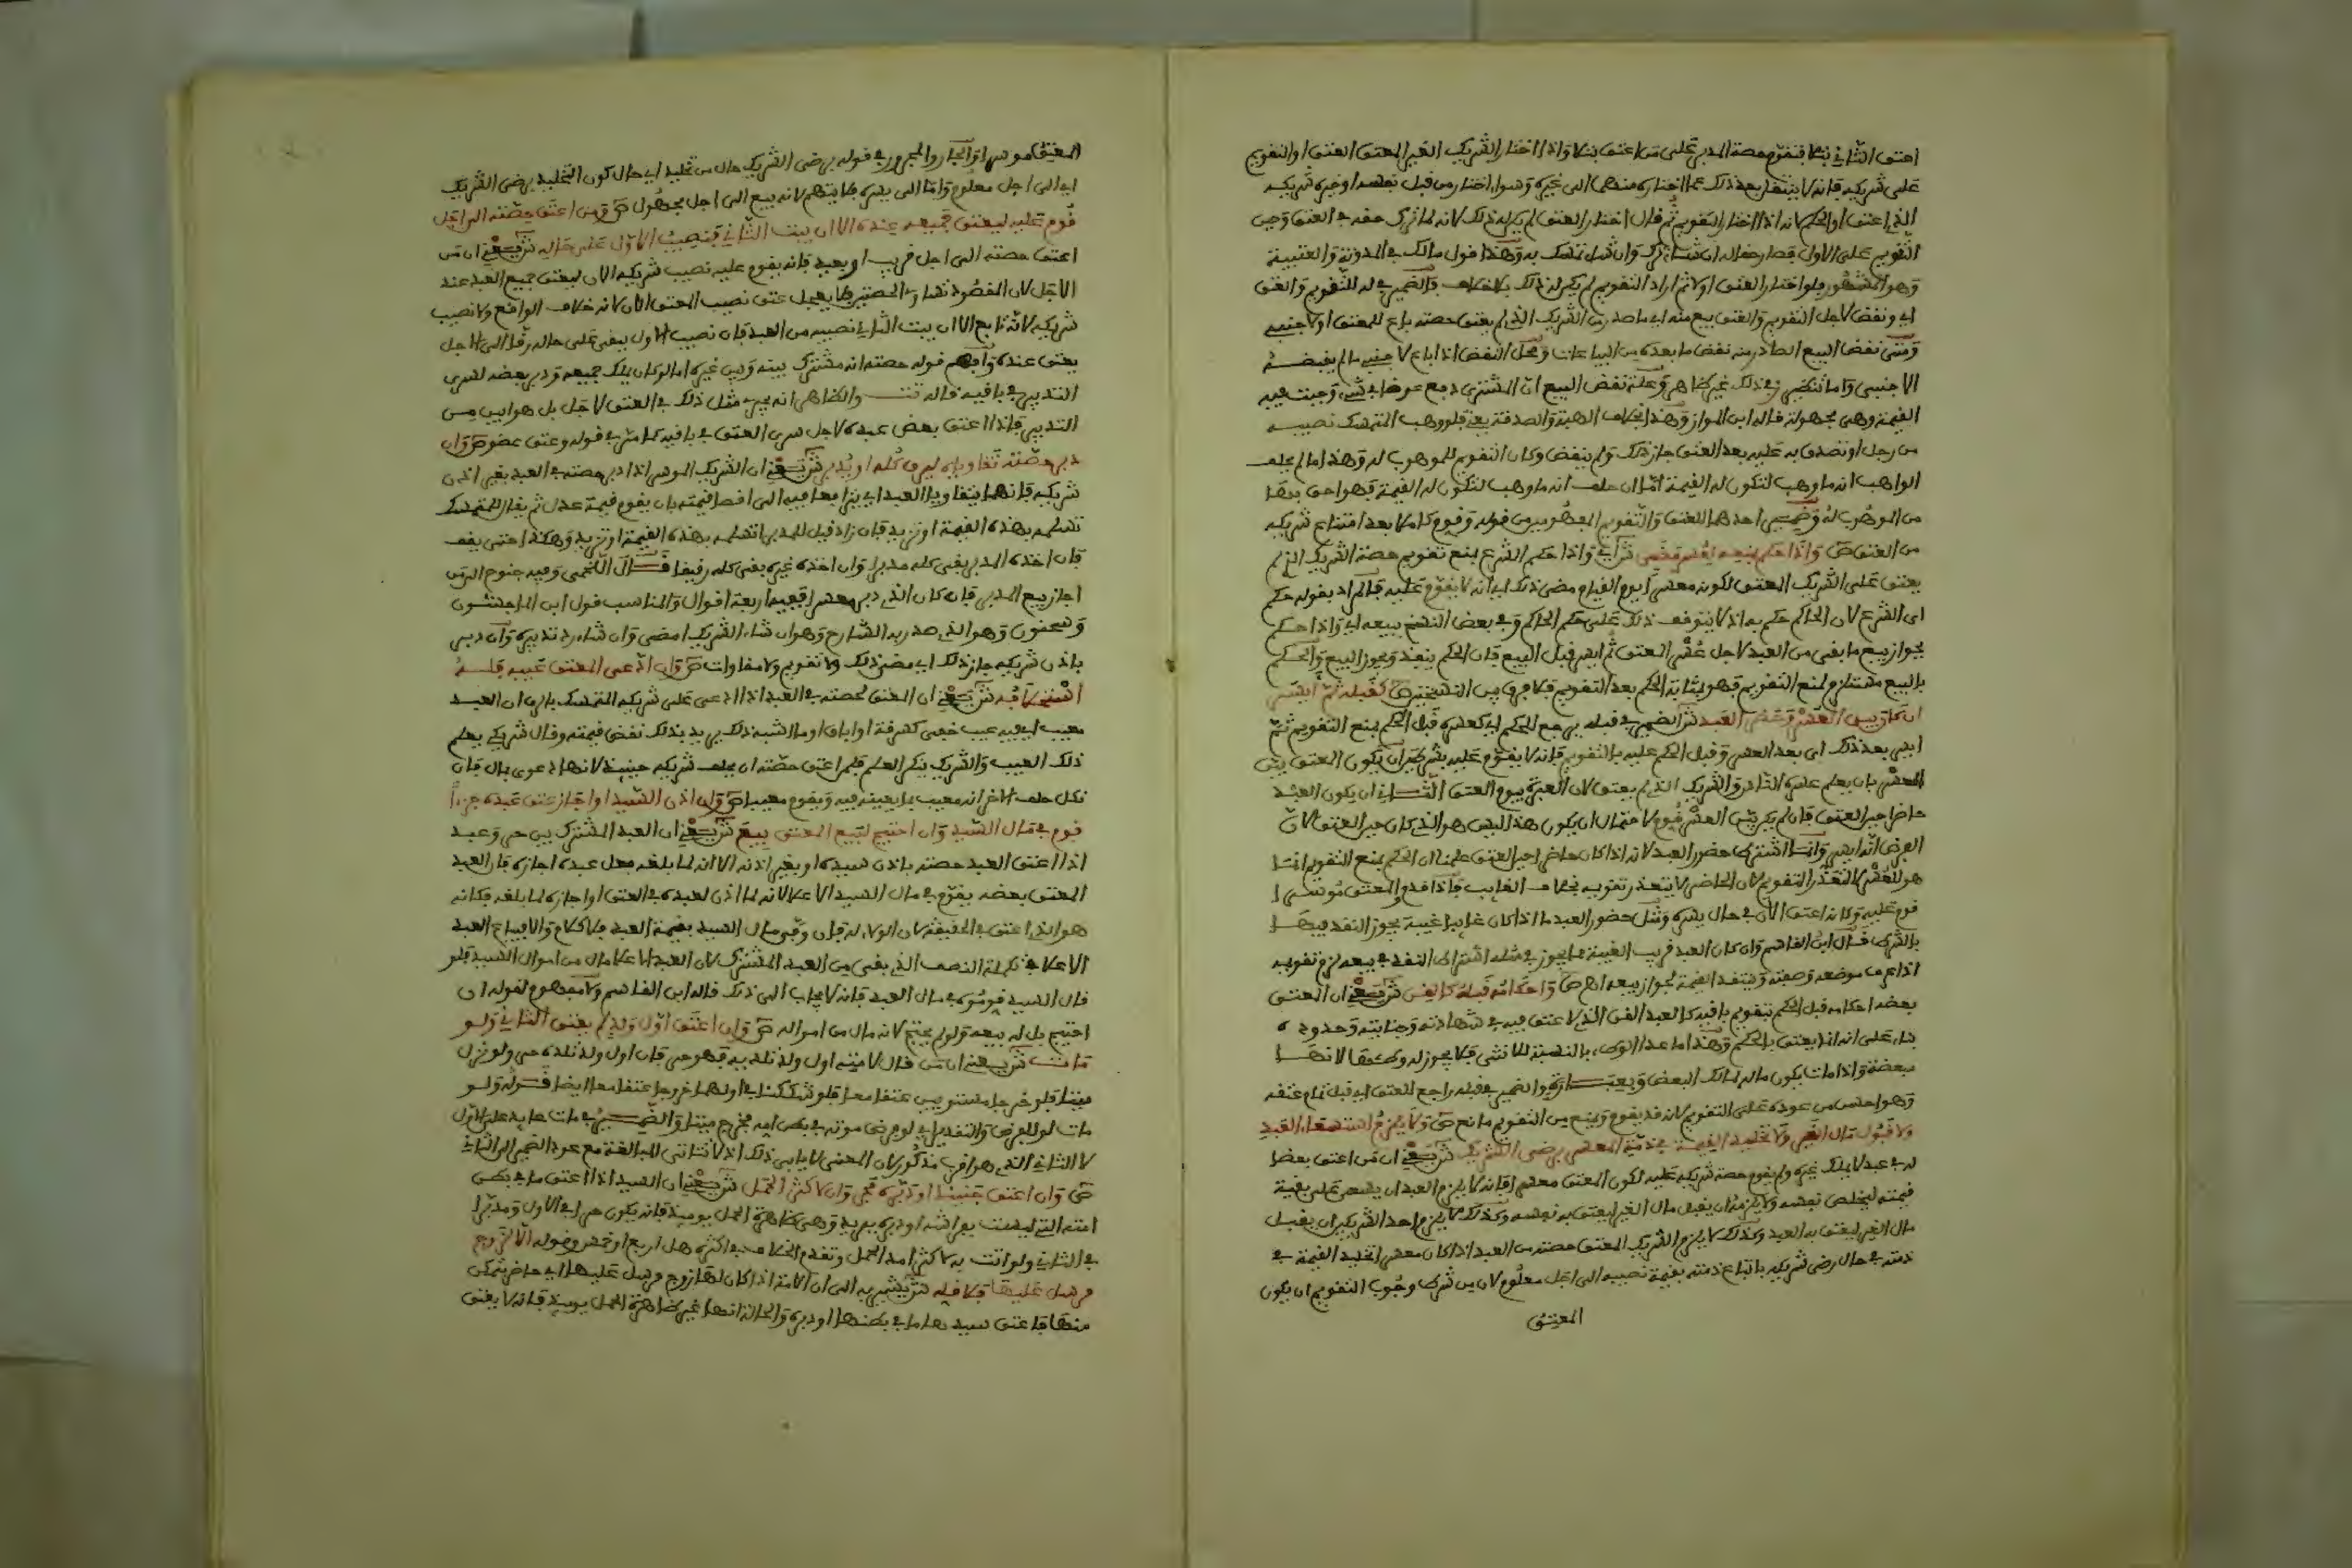 اعتق الثاني بتلا فتقوم حصة المدبر على من اعتق بتلا واذا اختار الشريك الغير المعتق العتق او التقويم
على شريكه فانه لا ينتقل بعد ذلك عما اختاره منهما الى غيره وسواء اختار من قبل نفسه او خيره شريكه
الذي اعتق او الحاكم لانه اذا اختار التقويم ثم قال اختار العتق لم يكن له ذلك لانه لما ترك حقه في العتق وجب
التقويم على الاول فصار حقا له ان شاء ترك وان شاء تمسك به وهذا قول مالك في المدونة والعتبية
وهو المشهور ولو اختار العتق اولا ثم اراد التقويم لم يكن له ذلك بلا خلاف فالضمير في له للتقويم والعتق
اي ونقض لاجل التقويم والعتق بيع منه اي ما صدر من الشريك الذي لم يعتق حصته باع للمعتق او لاجنبي
ومتى نقض البيع الصادر منه نقض ما بعده من البياعات ومحل النقض اذا باع لاجنبي ما لم يقبضه
الاجنبي وعلة نقض البيع ان المشتري دفع عوضا في شيء وجبت فيه
القيمة وهي مجهولة قاله ابن المواز وهذا بخلاف الهبة والصدقة يعني فلو وهب المتمسك نصيبه
من رجل او تصدق به عليه بعد العتق جاز ذلك ولم ينقض وكان التقويم للموهوب له وهذا ما لم يحلف
الواهب انه ما وهب لتكون له القيمة اما ان حلف انه ما وهب لتكون له القيمة فهو احق بها
من الموهوب له وضمير احدهما للعتق والتقويم المفهومين من قوله وقوم كاملا بعد امتناع شريكه
من العتق ص واذا حكم بمنعه لعسره مضى ش اي واذا حكم الشرع بمنع تقويم حصة الشريك الذي لم
يعتق على الشريك المعتق لكونه معسرا يوم القيام مضى ذلك اي انه لا يقوم عليه فالمراد بقوله حكم
اي الشرع لان الحاكم حكم به اذ لا يتوقف ذلك على حكم الحاكم وفي بعض النسخ ببيعه اي واذا حكم
بجواز بيع ما بقي من العبد لاجل عسر المعتق ثم ايسر قبل البيع فان الحكم ينفذ ويجوز البيع والحكم
بالبيع مستلزم لمنع التقويم فهو بمثابة الحكم بعد التقويم فلا فرق بين النسختين ص كقبله ثم ايسر
ان كان بين العسر وحضر العبد ش الضمير في قبله يرجع للحكم اي كعسره قبل الحكم بمنع التقويم ثم
ايسر بعد ذلك اي بعد العسر وقبل الحكم عليه بالتقويم فانه لا يقوم عليه بشرطين ان يكون المعتق بين
العسر بان يعلم عسره الناس والشريك الذي لم يعتق لان العبرة بيوم العتق الثاني ان يكون العبد
حاضرا حين العتق فان لم يكن بين العسر قوم لاحتمال ان يكون هذا اليسر هو الذي كان حين العتق لان
الفرض انه ايسر وانما اشترط حضور العبد لانه اذا كان حاضرا حين العتق علمنا ان الحكم بمنع التقويم انما
هو للعسر لا لتعذر التقويم لان الحاضر لا يتعذر تقويمه بخلاف الغائب فاذا قدم والمعتق موسرا
قوم عليه وكانه اعتق الآن في حال يسره ومثل حضور العبد ما اذا كان غائبا غيبة يجوز النقد فيها
بالشرط قال ابن القاسم وان كان العبد قريب الغيبة مما يجوز في مثله اشتراط النقد في بيعه لزم تقويمه
اذا عرف موضعه وصفته وينتقد القيمة لجواز بيعه اهـ ص واحكامه قبله كالقن ش يعني ان المعتق
بعضه احكامه قبل الحكم بتقويم باقيه كالعبد القن الذي لا عتق فيه في شهادته وجنايته وحدوده
بناء على انه انما يعتق بالحكم وهذا ما عدا الوطء بالنسبة للانثى فلا يجوز له وطؤها لانها
مبعضة واذا مات يكون ماله لمالك البعض راجع للعتق اي قبل تمام عتقه
وهو احسن من عوده على التقويم لانه قد يقوم ويمنع من التقويم مانع ص ولا يلزم استسعاء العبد
ولا قبول مال الغير ولا تخليد القيمة في ذمة المعسر برضى الشريك ش يعني ان من اعتق بعضا
له في عبد لا يملك غيره ولم يقوم حصة شريكه عليه لكون المعتق معسرا فانه لا يلزم العبد ان يسعى على بقية
قيمته ليخلص نفسه ولا يلزمه ان يقبل مال الغير ليعتق به نفسه وكذلك لا يلزم احد الشريكين ان يقبل
مال الغير ليعتق به العبد وكذلك لا يلزم الشريك المعتق حصته من العبد اذا كان معسرا تخليد القيمة في
ذمته في حال رضى شريكه باتباع ذمته بقيمة نصيبه الى اجل معلوم لان من شرط وجوب التقويم ان يكون
المعتق
المعتق موسرا والجار والمجرور في قوله برضى الشريك حال من تخليد اي حال كون التخليد برضى الشريك
اي الى اجل معلوم واما الى يسره فلا يتهم لانه بيع الى اجل مجهول ص ومن اعتق حصته الى اجل
قوم عليه ليعتق جميعه عنده الا ان يبت الثاني فنصيب الاول على حاله ش يعني ان من
اعتق حصته الى اجل قريب او بعيد فانه يقوم عليه نصيب شريكه الآن ليعتق جميع العبد عند
الاجل لان المقصود تساوي الحصتين فلا يعجل عتق نصيب المعتق الآن لانه خلاف الواقع ولا نصيب
شريكه لانه تابع الا ان يبت الثاني نصيبه من العبد فان نصيب الاول يبقى على حاله رقا الى الاجل
يعتق عنده وافهم قوله حصته انه مشترك بينه وبين غيره اما لو كان يملك جميعه ودبر بعضه لسرى
التدبير في باقيه قاله تت والظاهر انه يجري مثل ذلك في العتق لاجل بل هو ابين من
التدبير فاذا اعتق بعض عبده لاجل سرى العتق في باقيه كما مر في قوله وعتق عضو ص وان
دبر حصته تقاوياه ليرق كله او يدبر ش يعني ان الشريك الموسر اذا دبر حصته في العبد بغير اذن
شريكه فانهما يتقاويا العبد اي يتزايدا فيه الى اقصا قيمته بان يقوم قيمة عدل ثم يقال للمتمسك
تسلمه بهذه القيمة او تزيد فان زاد قيل للمدبر اتسلمه بهذه القيمة او تزيد وهكذا حتى يقف
فان اخذه المدبر بقي كله مدبرا وان اخذه غيره بقي كله رقيقا قال اللخمي وفيه جنوح الى من
اجاز بيع المدبر فان كان الذي دبر معسرا ففيه اربعة اقوال والمناسب قول ابن الماجشون
وسحنون وهو الذي صدر به الشارح وهو ان شاء الشريك امضى وان شاء رد تدبيره وان دبر
باذن شريكه جاز ذلك اي مضى ذلك ولا تقويم ولا مقاوات ص وان ادعى المعتق عيبه فله
استحلافه ش يعني ان المعتق لحصته في العبد اذا ادعى على شريكه المتمسك بالرق ان العبد
معيب اي فيه عيب خفي كسرقة او اباق او ما اشبه ذلك يريد بذلك نقص قيمته وقال شريكي يعلم
ذلك العيب والشريك ينكر العلم فلمن اعتق حصته ان يحلف شريكه حينئذ لانها دعوى بمال فان
نكل حلف الآخر انه معيب بما يعينه فيه ويقوم معيبا ص وان اذن السيد او اجاز عتق عبده جزءا
قوم في مال السيد وان احتيج لبيع المعتق بيع ش يعني ان العبد المشترك بين حر وعبد
اذا اعتق العبد حصته باذن سيده او بغير اذنه الا انه لما بلغه فعل عبده اجازه فان العبد
المعتق بعضه يقوم في مال السيد الاعلا لانه لما اذن لعبده في العتق او اجازه لما بلغه فكانه
هو الذي اعتق في الحقيقة لان الولاء له فان وفى مال السيد بقيمة العبد فلا كلام والا فيباع العبد
الاعلا في تكملة النصف الذي بقي من العبد المشترك لان العبد الاعلا مال من اموال السيد فلو
قال السيد قوموه في مال العبد فانه لا يجاب الى ذلك قاله ابن القاسم ولا مفهوم لقوله ان
احتيج بل له بيعه ولو لم يحتج لانه مال من امواله ص وان اعتق اول ولد لم يعتق الثاني ولو
مات ش يعني ان من قال لامته اول ولد تلديه فهو حر فان اول ولد تلده حر ولو نزل
ميتا فلو خرجا مستويين عتقا معا فلو شككنا في اولهما خروجا عتقا معا ايضا قوله ولو
مات لو للفرض والتقدير اي لو فرض موته في بطن امه فخرج ميتا والضمير في مات عايد على الاول
لا الثاني الذي هو اقرب مذكور لان المعنى لا يابى ذلك اذ لا تتاتى المبالغة مع عود الضمير الى الثاني
ص وان اعتق جنينا او دبره فحر وان لاكثر الحمل ش يعني ان السيد اذا اعتق ما في بطن
امته التي ليست بفراشه او دبره يريد وهي ظاهرة الحمل يوميذ فانه يكون حرا في الاول ومدبرا
في الثاني ولو اتت به لاكثر امد الحمل وتقدم الخلاف في اكثره هل اربع او خمس وقوله الا لزوج
مرسل عليها فلاقله ش يشير به الى ان الامة اذا كان لها زوج مرسل عليها اي حاضر تمكن
منها فاعتق سيدها ما في بطنها او دبره والحال انها غير ظاهرة الحمل يوميذ فانه لا يعتق